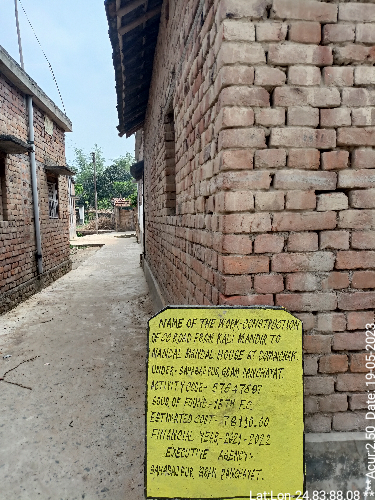 NAME OF THE WORK-CONSTRUCTION
OF CC ROAD FROM KALI MANDIR TO
MANGAL MANDAL HOUSE AT
UNDER- SAHABAJPUR, GRAM PANCHAYAT.
ACTIVITY CODE-
SOUR OF FOUND-15TH F.C.
ESTIMATED COST-
FINANCIAL YEAR-2021-2022
EXECUTIVE AGENCY-
SAHABAJPUR, GRAM PANCHAYAT.
Lat Lon 24.83:88.08
**Acur:2.50 Date: 19-05-2023